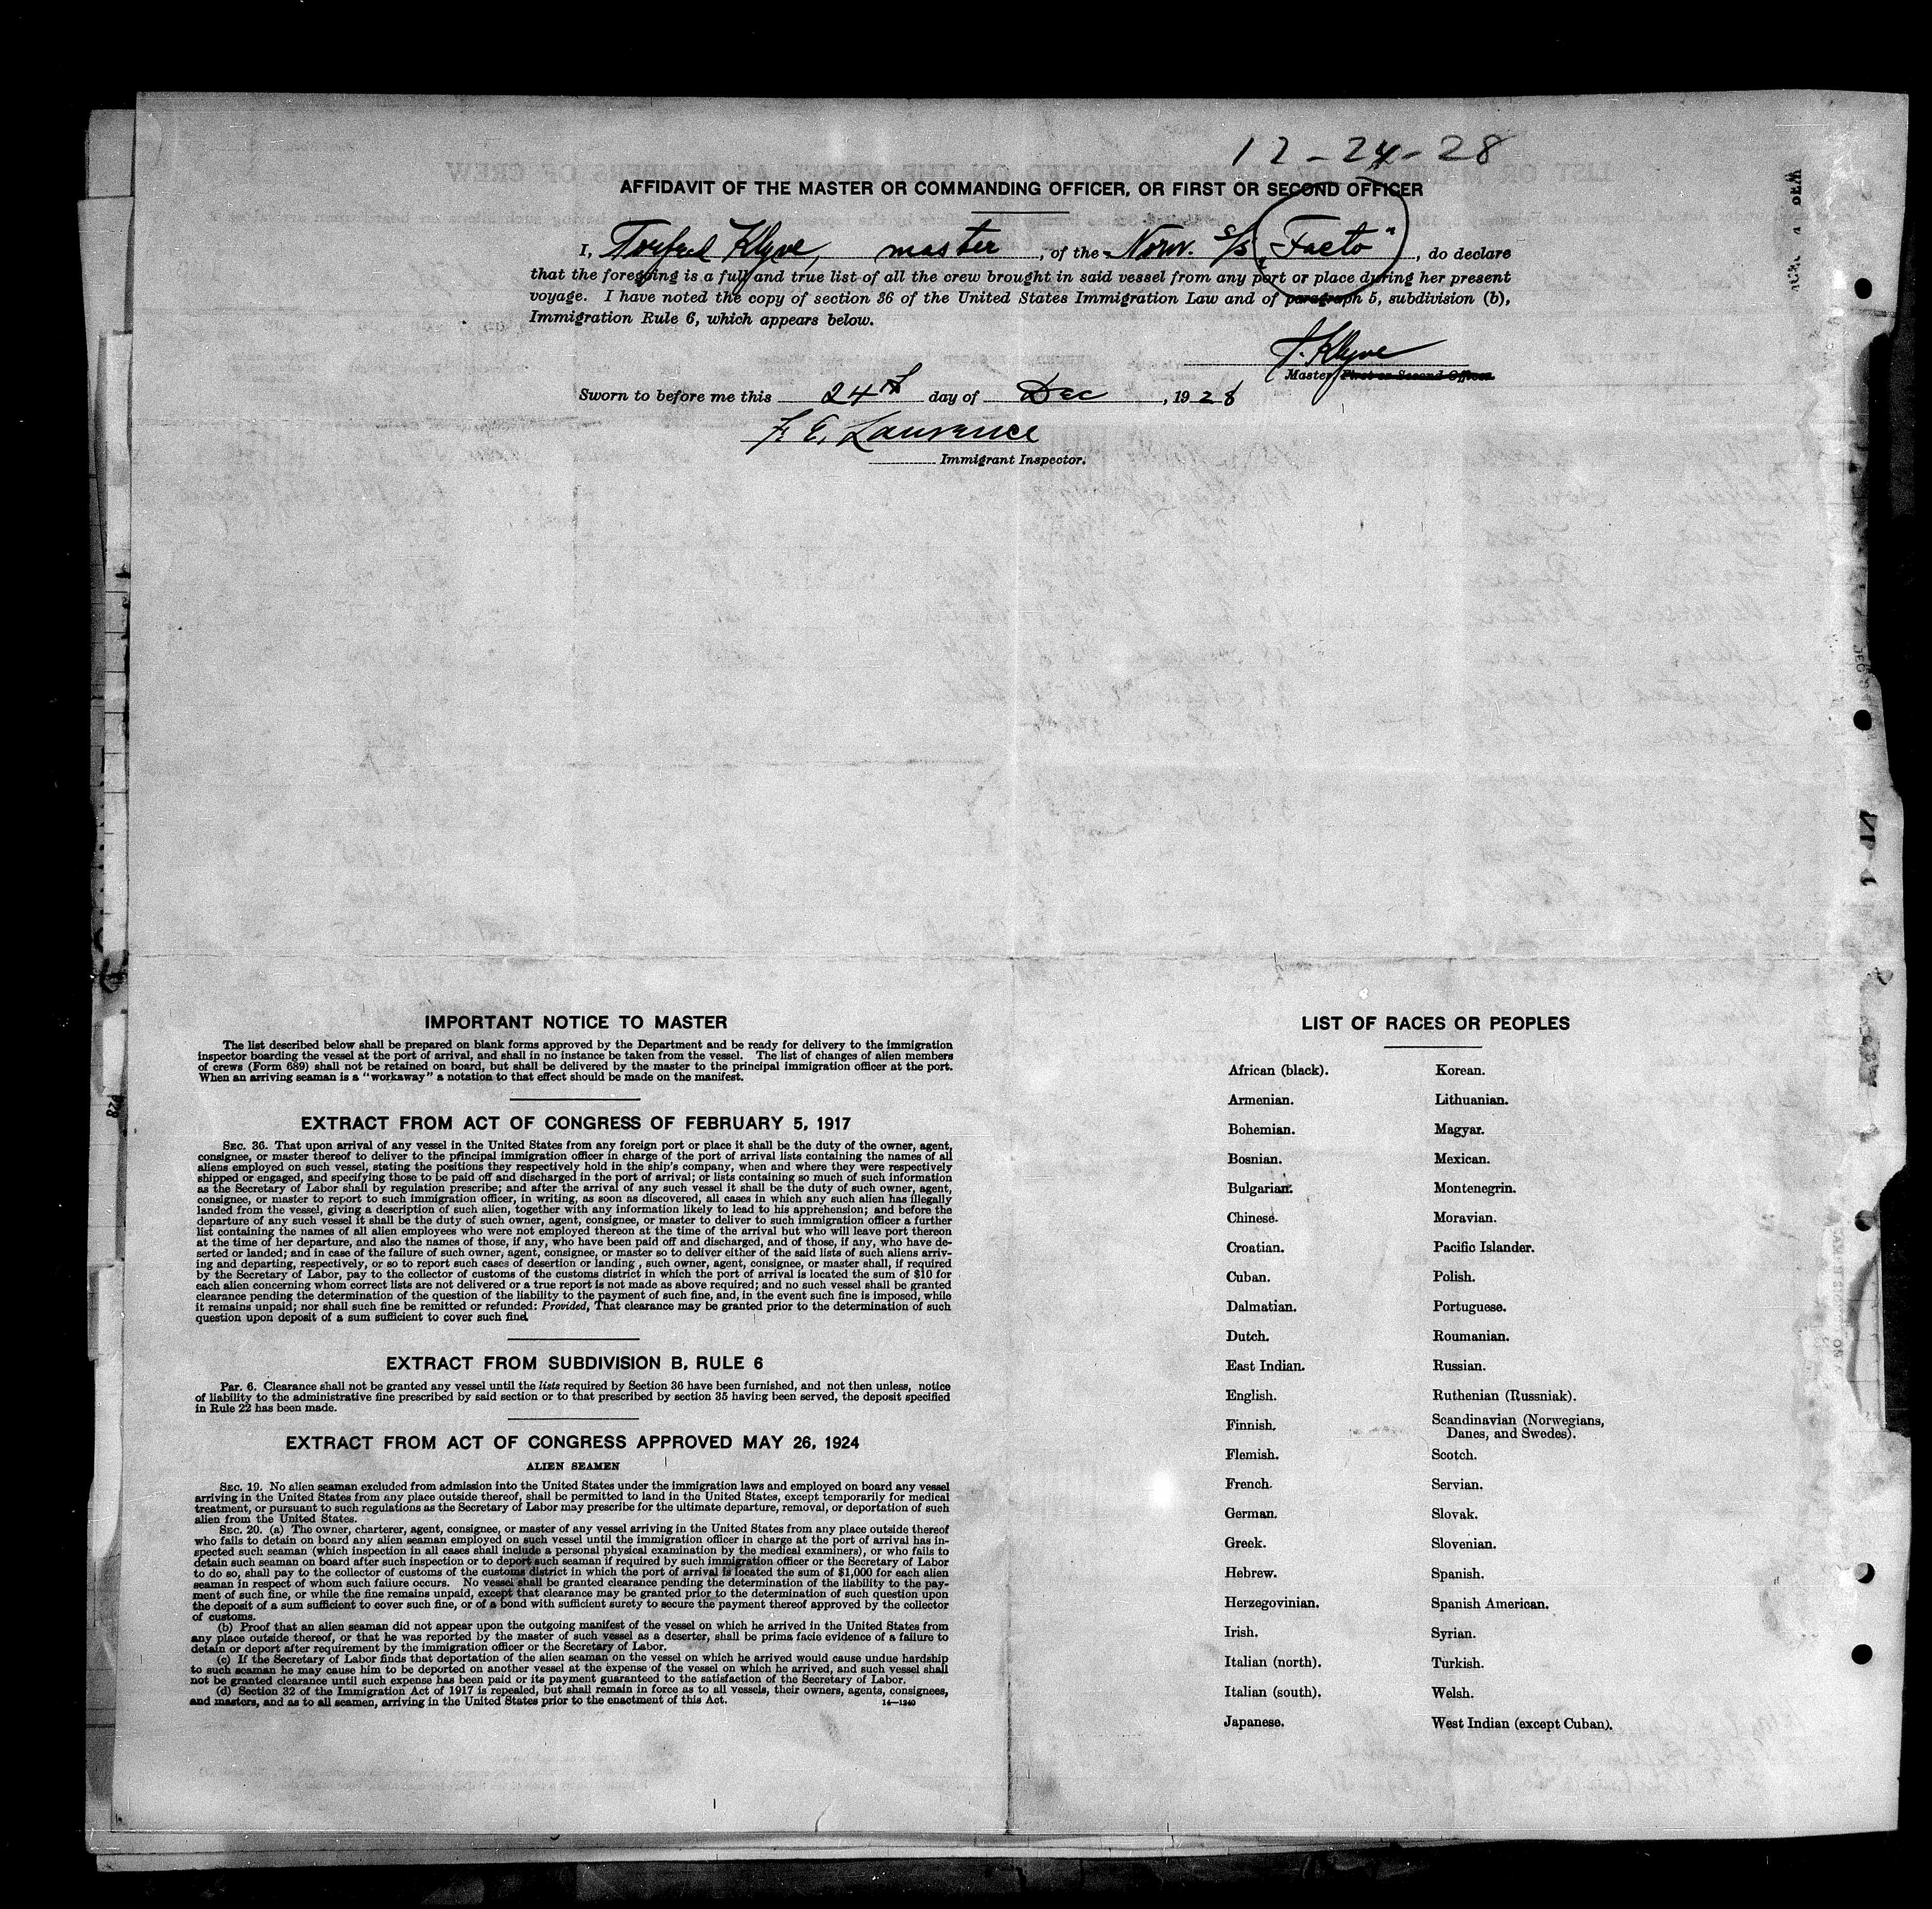 12-24-28
AFFIDAVIT OF THE MASTER OR COMMANDING OFFICER, OR FIRST OR SECOND OFFICER
I, Klyve, master, of the Norw. S/S "Facto", do declare
that the foregoing is a full and true list of all the crew brought in said vessel from any port or place during her present
voyage. I have noted the copy of section 36 of the United States Immigration Law and of paragraph 5, subdivision (b),
Immigration Rule 6, which appears below.
J. Klyve
Master, First or Second Officer.
Sworn to before me this 24th day of Dec, 1928
F. E. Lawrence
Immigrant Inspector.
IMPORTANT NOTICE TO MASTER
The list described below shall be prepared on blank forms approved by the Department and be ready for delivery to the immigration
inspector boarding the vessel at the port of arrival, and shall in no instance be taken from the vessel. The list of changes of alien members
of crews (Form 689) shall not be retained on board, but shall be delivered by the master to the principal immigration officer at the port.
When an arriving seaman is a "workaway" a notation to that effect should be made on the manifest.
EXTRACT FROM ACT OF CONGRESS OF FEBRUARY 5, 1917
SEC. 36. That upon arrival of any vessel in the United States from any foreign port or place it shall be the duty of the owner, agent,
consignee, or master thereof to deliver to the principal immigration officer in charge of the port of arrival lists containing the names of all
aliens employed on such vessel, stating the positions they respectively hold in the ship's company, when and where they were respectively
shipped or engaged, and specifying those to be paid off and discharged in the port of arrival; or lists containing so much of such information
as the Secretary of Labor shall by regulation prescribe; and after the arrival of any such vessel it shall be the duty of such owner, agent,
consignee, or master to report to such immigration officer, in writing, as soon as discovered, all cases in which any such alien has illegally
landed from the vessel, giving a description of such alien, together with any information likely to lead to his apprehension; and before the
departure of any such vessel it shall be the duty of such owner, agent, consignee, or master to deliver to such immigration officer a further
list containing the names of all alien employees who were not employed thereon at the time of the arrival but who will leave port thereon
at the time of her departure, and also the names of those, if any, who have been paid off and discharged, and of those, if any, who have de-
serted or landed; and in case of the failure of such owner, agent, consignee, or master so to deliver either of the said lists of such aliens arriv-
ing and departing, respectively, or so to report such cases of desertion or landing, such owner, agent, consignee, or master shall, if required
by the Secretary of Labor, pay to the collector of customs of the customs district in which the port of arrival is located the sum of $10 for
each alien concerning whom correct lists are not delivered or a true report is not made as above required; and no such vessel shall be granted
clearance pending the determination of the question of the liability to the payment of such fine, and, in the event such fine is imposed, while
it remains unpaid; nor shall such fine be remitted or refunded: Provided, That clearance may be granted prior to the determination of such
question upon deposit of a sum sufficient to cover such fine.
EXTRACT FROM SUBDIVISION B, RULE 6
Par. 6. Clearance shall not be granted any vessel until the lists required by Section 36 have been furnished, and not then unless, notice
of liability to the administrative fine prescribed by said section or to that prescribed by section 35 having been served, the deposit specified
in Rule 22 has been made.
EXTRACT FROM ACT OF CONGRESS APPROVED MAY 26, 1924
ALIEN SEAMEN
SEC. 19. No alien seaman excluded from admission into the United States under the immigration laws and employed on board any vessel
arriving in the United States from any place outside thereof, shall be permitted to land in the United States, except temporarily for medical
treatment, or pursuant to such regulations as the Secretary of Labor may prescribe for the ultimate departure, removal, or deportation of such
alien from the United States.
SEC. 20. (a) The owner, charterer, agent, consignee, or master of any vessel arriving in the United States from any place outside thereof
who fails to detain on board any alien seaman employed on such vessel until the immigration officer in charge at the port of arrival has in-
spected such seaman (which inspection in all cases shall include a personal physical examination by the medical examiners), or who fails to
detain such seaman on board after such inspection or to deport such seaman if required by such immigration officer or the Secretary of Labor
to do so, shall pay to the collector of customs of the customs district in which the port of arrival is located the sum of $1,000 for each alien
seaman in respect of whom such failure occurs. No vessel shall be granted clearance pending the determination of the liability to the pay-
ment of such fine, or while the fine remains unpaid, except that clearance may be granted prior to the determination of such question upon
the deposit of a sum sufficient to cover such fine, or of a bond with sufficient surety to secure the payment thereof approved by the collector
of customs.
(b) Proof that an alien seaman did not appear upon the outgoing manifest of the vessel on which he arrived in the United States from
any place outside thereof, or that he was reported by the master of such vessel as a deserter, shall be prima facie evidence of a failure to
detain or deport after requirement by the immigration officer or the Secretary of Labor.
(c) If the Secretary of Labor finds that deportation of the alien seaman on the vessel on which he arrived would cause undue hardship
to such seaman he may cause him to be deported on another vessel at the expense of the vessel on which he arrived, and such vessel shall
not be granted clearance until such expense has been paid or its payment guaranteed to the satisfaction of the Secretary of Labor.
(d) Section 32 of the Immigration Act of 1917 is repealed, but shall remain in force as to all vessels, their owners, agents, consignees,
and masters, and as to all seamen, arriving in the United States prior to the enactment of this Act.
14—1240
LIST OF RACES OR PEOPLES
African (black). Korean.
Armenian. Lithuanian.
Bohemian. Magyar.
Bosnian. Mexican.
Bulgarian. Montenegrin.
Chinese. Moravian.
Croatian. Pacific Islander.
Cuban. Polish.
Dalmatian. Portuguese.
Dutch. Roumanian.
East Indian. Russian.
English. Ruthenian (Russniak).
Finnish. Scandinavian (Norwegians,
Danes, and Swedes).
Flemish. Scotch.
French. Servian.
German. Slovak.
Greek. Slovenian.
Hebrew. Spanish.
Herzegovinian. Spanish American.
Irish. Syrian.
Italian (north). Turkish.
Italian (south). Welsh.
Japanese. West Indian (except Cuban).